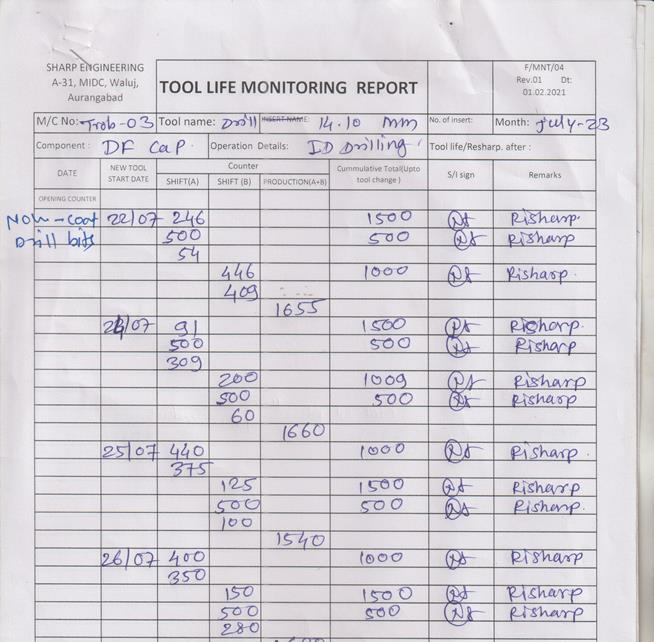 SHARP ENGINEERING
A-31, MIDC, Waluj,
Aurangabad
TOOL LIFE MONITORING REPORT
F/MNT/04
Rev.01 Dt:
01.02.2021
M/C No: Trob-03 Tool name: Drill INSERT NAME: 14.10 mm No. of insert: Month: July-23
Component : DF Cap. Operation Details: ID Drilling. Tool life/Resharp. after :
DATE NEW TOOL START DATE Counter Cummulative Total(Upto tool change ) S/I sign Remarks
SHIFT(A) SHIFT (B) PRODUCTION(A+B)
OPENING COUNTER
Non-coat 22/07 246 1500 Risharp.
Drill bits 500 500 Risharp
54
446 1000 Risharp.
409
1655
24/07 91 1500 Risharp.
500 500 Risharp
309
200 1009 Risharp
500 500 Risharp
60
1660
25/07 440 1000 Risharp.
375
125 1500 Risharp
500 500 Risharp
100
1540
26/07 400 1000 Risharp
350
150 1500 Risharp
500 500 Risharp
280